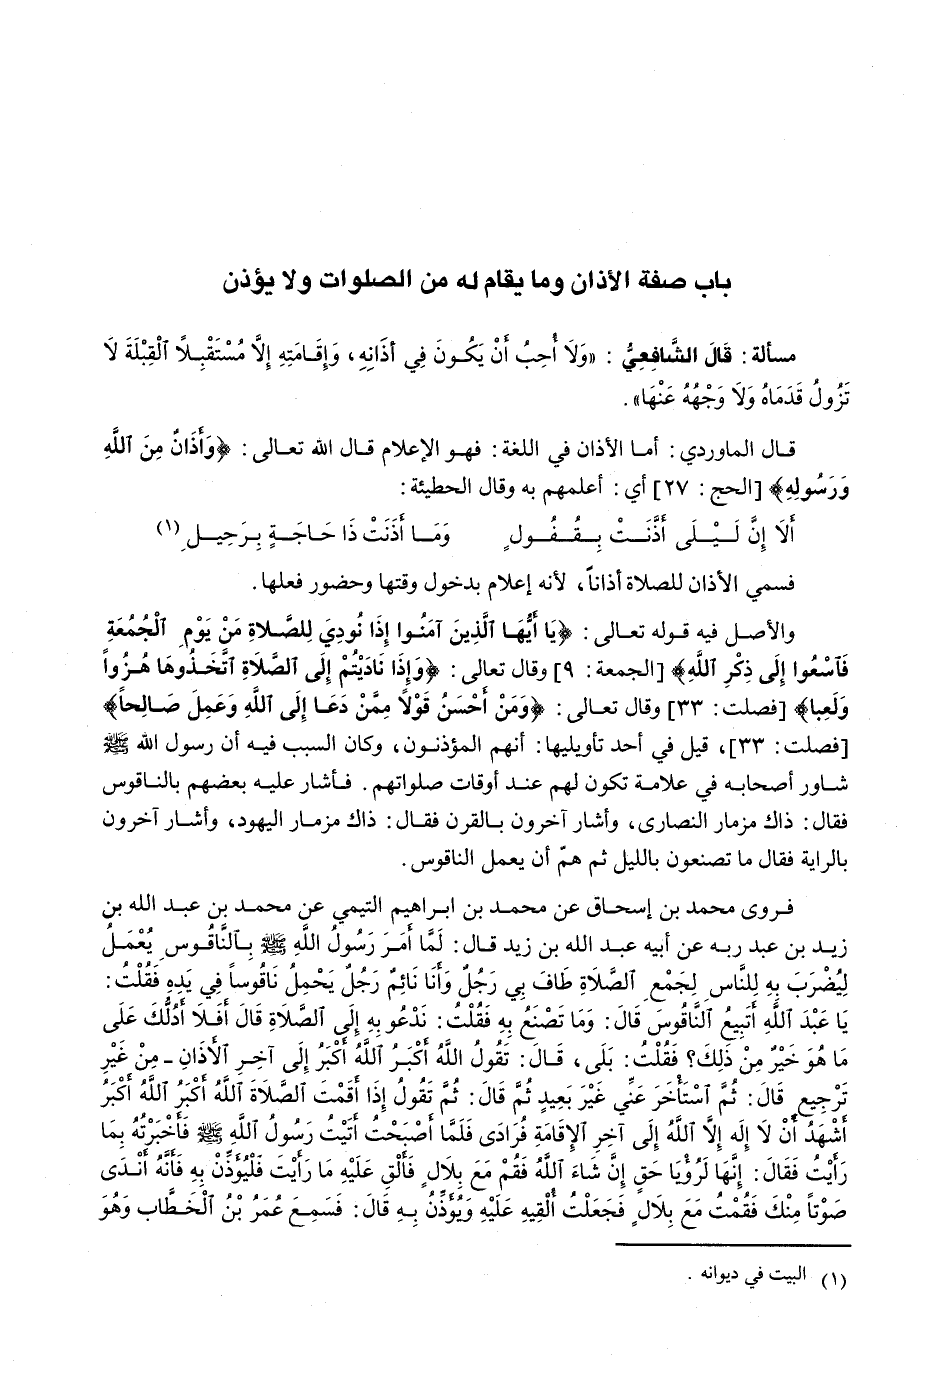 باب صفة الأذان وما يقام له من الصلوات ولا يؤذن
مسألة: قَالَ الشَّافِعِيُّ : «وَلَا أُحِبُّ أَنْ يَكُونَ فِي أذَانِهِ، وَإِقَامَتِهِ إِلَّا مُسْتَقْبِلاً الْقِبْلَةَ لَا
تَزُولُ قَدَمَاهُ وَلَا وَجْهُهُ عَنْهَا».
قال الماوردي: أما الأذان في اللغة: فهو الإعلام قال الله تعالى: ﴿وَأَذَانٌ مِنَ اللَّهِ
وَرَسُولِهِ﴾ [الحج: ٢٧] أي: أعلمهم به وقال الحطيئة:
أَلَا إِنَّ لَيْلَى أَذَّنَتْ بِقُفُولٍ وَمَا أَذَنَتْ ذَا حَاجَةٍ بِرَحِيلِ(١)
فسمي الأذان للصلاة أذاناً، لأنه إعلام بدخول وقتها وحضور فعلها.
والأصل فيه قوله تعالى: ﴿يَا أَيُّهَا الَّذِينَ آمَنُوا إِذَا نُودِيَ لِلصَّلاةِ مَنْ يَوْمِ الْجُمُعَةِ
فَاسْعُوا إِلَى ذِكْرِ اللَّهِ﴾ [الجمعة: ٩] وقال تعالى: ﴿وَإِذَا نَادَيْتُمْ إِلَى الصَّلَاةِ اتَّخَذُوهَا هُزُواً
وَلَعِبا﴾ [فصلت: ٣٣] وقال تعالى: ﴿وَمَنْ أَحْسَنُ قَوْلاً مِمَّنْ دَعَا إِلَى اللَّهِ وَعَمِلَ صَالِحاً﴾
[فصلت: ٣٣]، قيل في أحد تأويليها: أنهم المؤذنون، وكان السبب فيه أن رسول الله ﷺ
شاور أصحابه في علامة تكون لهم عند أوقات صلواتهم. فأشار عليه بعضهم بالناقوس
فقال: ذاك مزمار النصارى، وأشار آخرون بالقرن فقال: ذاك مزمار اليهود، وأشار آخرون
بالراية فقال ما تصنعون بالليل ثم همّ أن يعمل الناقوس.
فروى محمد بن إسحاق عن محمد بن ابراهيم التيمي عن محمد بن عبد الله بن
زيد بن عبد ربه عن أبيه عبد الله بن زيد قال: لَمَّا أَمَرَ رَسُولُ اللَّهِ ﷺ بِالنَّاقُوسِ يُعْمَلُ
لِيُضْرَبَ بِهِ لِلنَّاسِ لِجَمْعِ الصَّلَاةِ طَافَ بِي رَجُلٌ وَأَنَا نَائِمٌ رَجُلٌ يَحْمِلُ نَاقُوساً فِي يَدِهِ فَقُلْتُ:
يَا عَبْدَ اللَّهِ أَتَبِيعُ النَّاقُوسَ قَالَ: وَمَا تَصْنَعُ بِهِ فَقُلْتُ: نَدْعُو بِهِ إِلَى الصَّلَاةِ قَالَ أَفَلَا أَدُلُّكَ عَلَى
مَا هُوَ خَيْرٌ مِنْ ذَلِكَ؟ فَقُلْتُ: بَلَى، قَالَ: تَقُولُ اللَّهُ أَكْبَرُ اللَّهُ أَكْبَرُ إِلَى آخِرِ الْأَذَانِ - مِنْ غَيْرِ
تَرْجِيعٍ قَالَ: ثُمَّ اسْتَأْخَرَ عَنِّي غَيْرَ بَعِيدٍ ثُمَّ قَالَ: ثُمَّ تَقُولُ إِذَا أَقَمْتَ الصَّلَاةَ اللَّهُ أَكْبَرُ اللَّهُ أَكْبَرُ
أَشْهَدُ أَنْ لَا إِلَه إِلَّا اللَّهُ إِلَى آخِرِ الإِقَامَةِ فُرَادَى فَلَمَّا أَصْبَحْتُ أَتَيْتُ رَسُولَ اللَّهِ ﷺ فَأَخْبَرْتُهُ بِمَا
رَأَيْتُ فَقَالَ: إِنَّهَا لَرُؤْيَا حَقٍ إِنَّ شَاءَ اللَّهُ فَقُمْ مَعَ بِلَالٍ فَأَلْقِ عَلَيْهِ مَا رَأَيْتَ فَلْيُؤَذِّنْ بِهِ فَأَنَّهُ أَنْدَى
صَوْتاً مِنْكَ فَقُمْتُ مَعَ بِلَالٍ فَجَعَلْتُ أُلْقِيهِ عَلَيْهِ وَيُؤَذِّنُ بِهِ قَالَ: فَسَمِعَ عُمَرُ بْنُ الْخَطَّابِ وَهُوَ
(١) البيت في ديوانه.